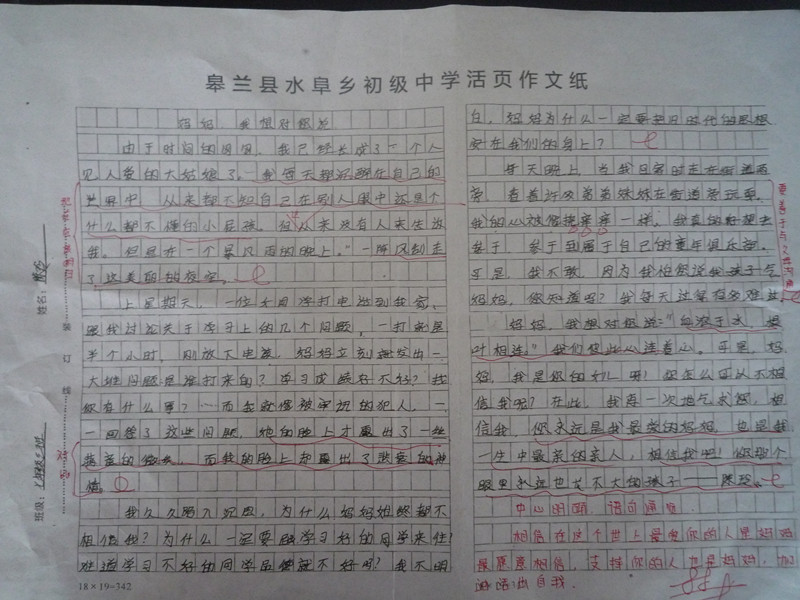 皋兰县水阜乡初级中学活页作文纸
妈妈，我想对您说
由于时间的周围，我已经长成了一个人
见人爱的大姑娘了。我每天都沉醉在自己的
世界中，从来都不知自己在别人眼中还是个
什么都不懂的小屁孩。但从来没有人来告诉
我。但是在一个暴风雨的晚上。"一阵风刮走
了这美丽的夜空。
上星期天，一位女同学打电话到我家，
跟我讨论关于学习上的几个问题，一打就是
半个小时，刚放下电话，妈妈立刻
大堆问题是谁打来的？学习成绩好不好？找
你有什么事？……而我就像被审视的犯人，一
一回答了这些问题，她的脸上才露出了一丝
的微笑，而我的脸上却露出了悲哀的神
情。
我久久陷入沉思，为什么妈妈始终都不
相信我？为什么一定要跟学习好的同学来往！
难道学习不好的同学品德就不好吗？我不明
18×19=342
白，妈妈为什么一定要把旧时代的思想
安在我们的身上？
每天晚上，当我日常时走在街道两
旁，看着许多弟弟妹妹在街道旁玩耍，
我的心被 一样，我真的好想去
参于，参于到属于自己的童年俱乐部。
可是，我不敢，因为我怕您说我孩子气
妈妈，你知道吗？我每天过得有多难过
妈妈，我想对您说："血浓于水，根
叶相连"我们彼此心连着心。可是，妈
妈，我是你的女儿啊！您怎么可以不相
信我呢？在此，我再一次地乞求您，相
信我，你永远是我最亲的妈妈，也是我
一生中最亲的亲人，相信我吧！你那个
眼里永远也长不大的孩子——
中心明确，语句通顺
相信在这个世上最爱你的人是妈妈
最愿意相信，支持你的人也是妈妈，加
油活出自我。
姓名：
班级：
装
订
线